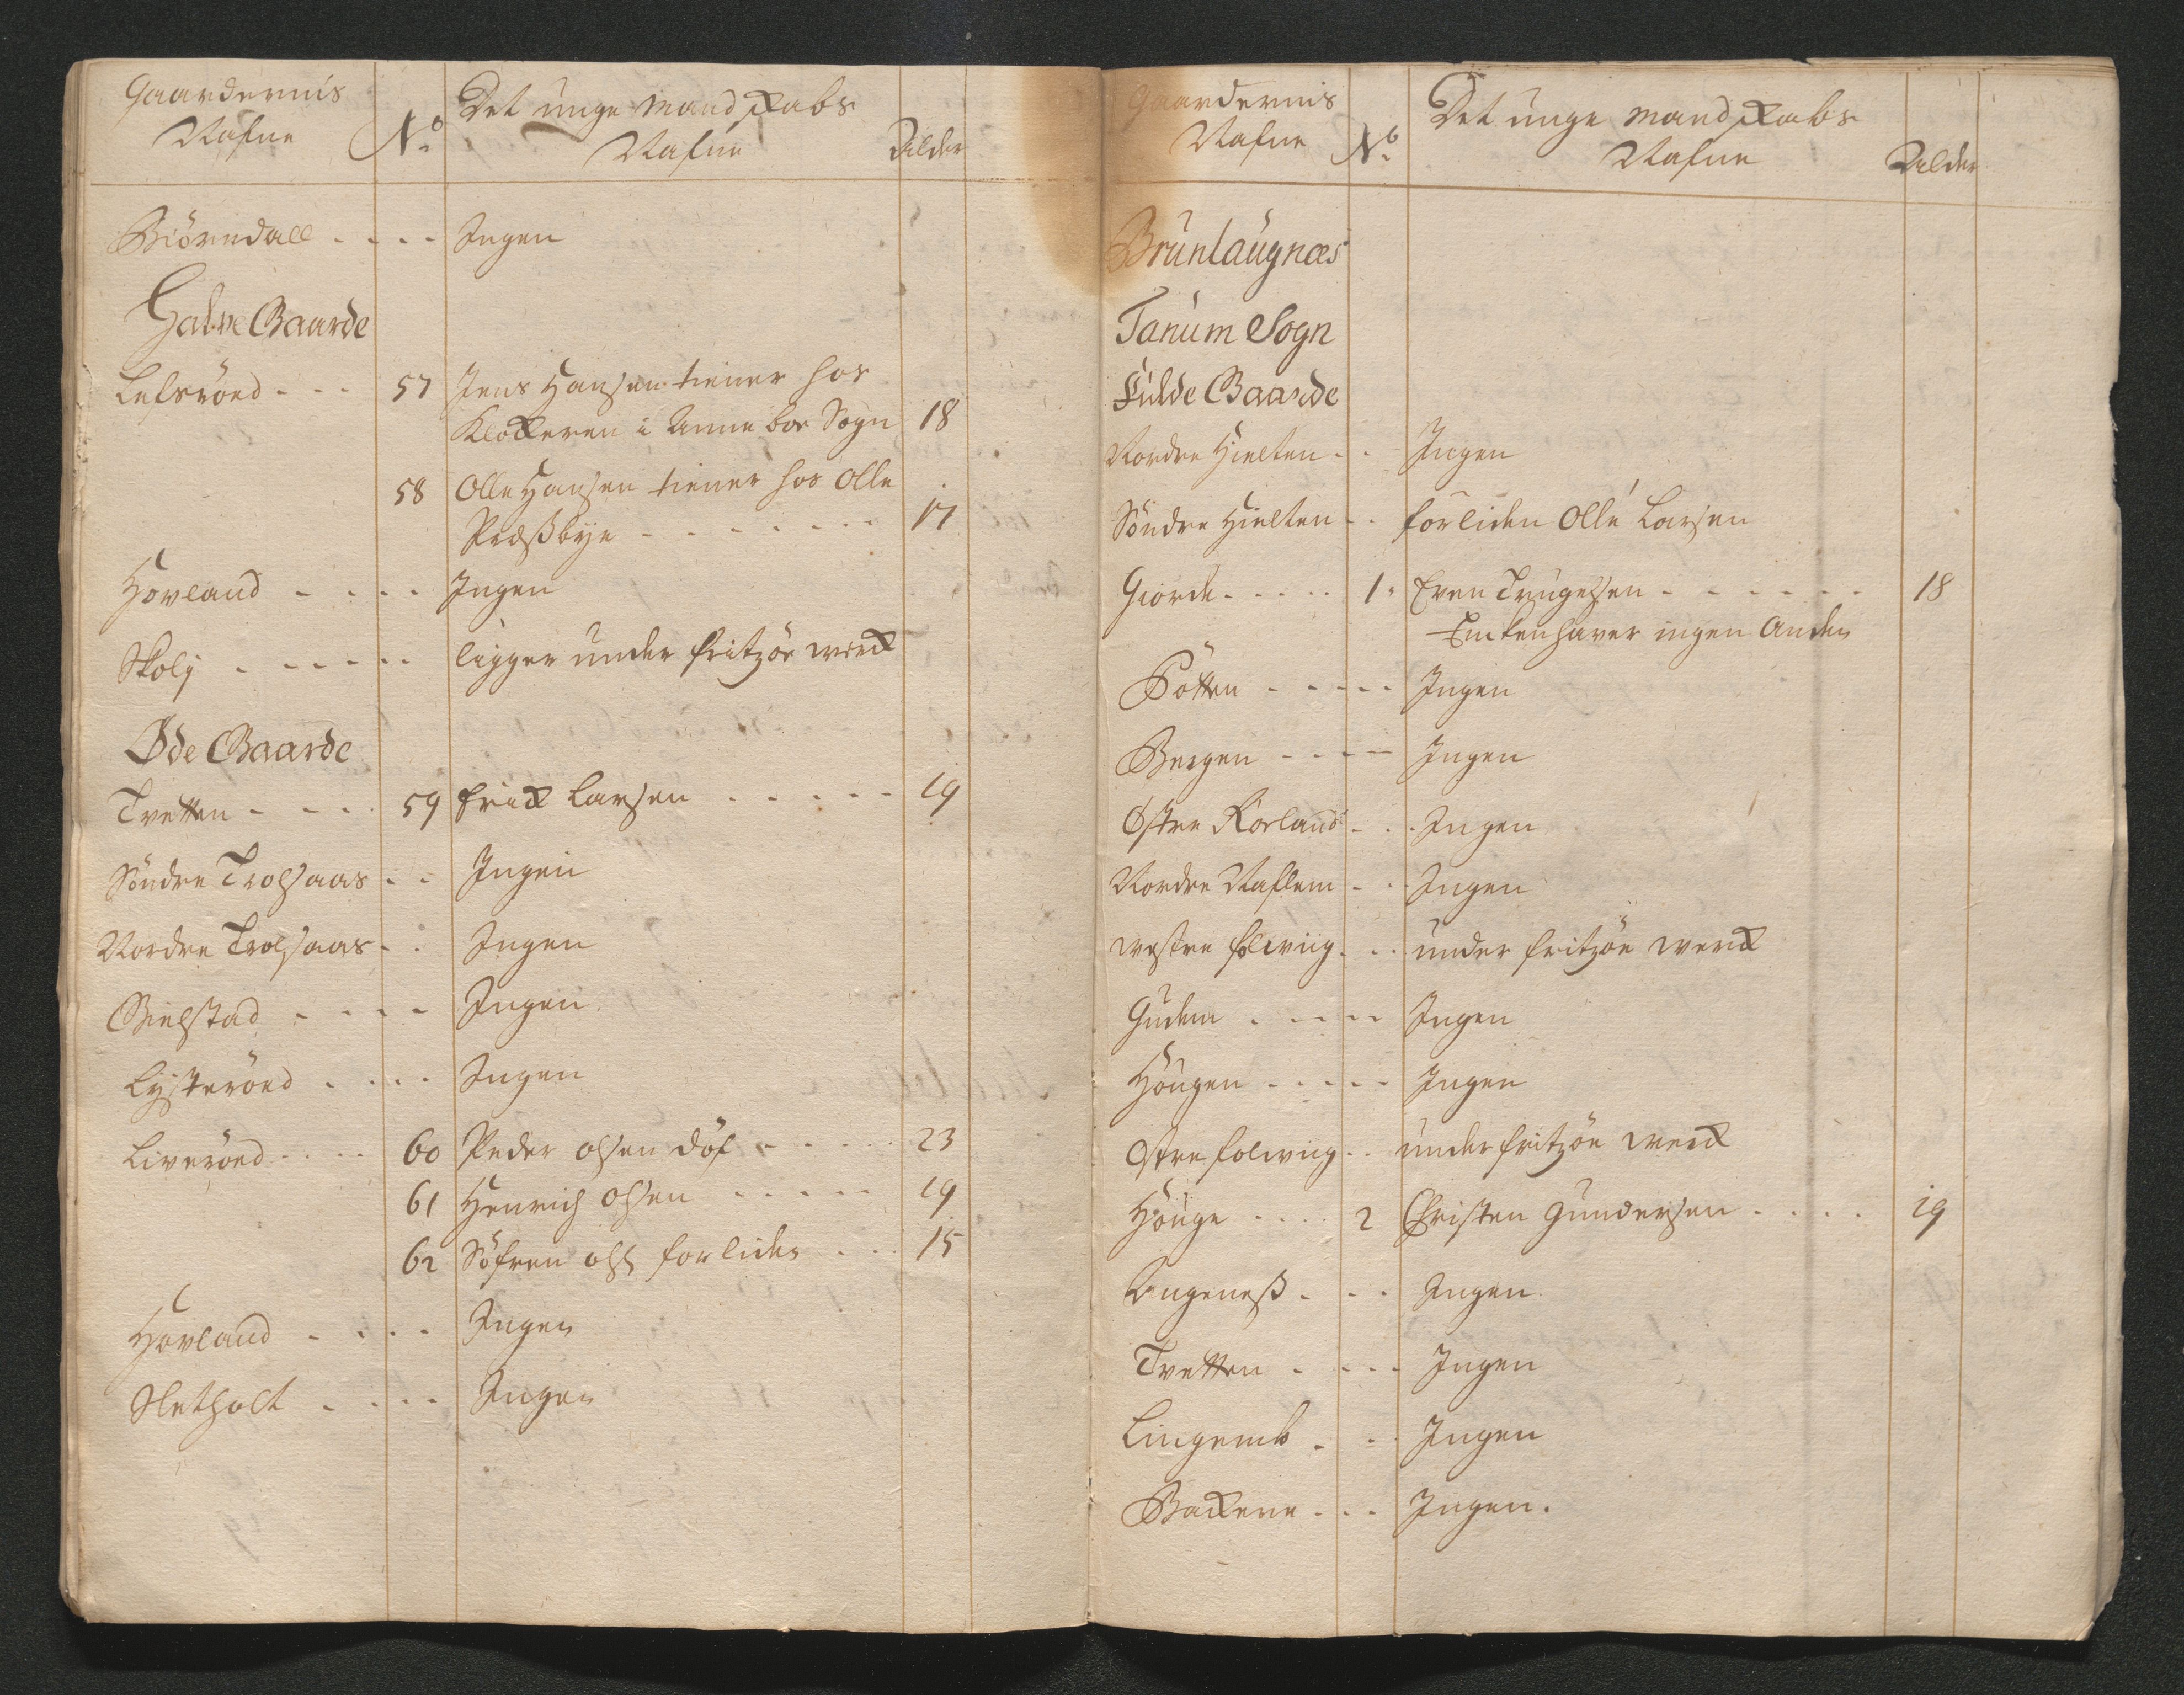 Gaardernis
Nafne
No
Det unge Mandskabs
Nafne
Alder
Biørndall - - - - Ingen
Halve Gaarde
Lefsröed - - - 57 Jens Hansen tiener hos
Klockeren i Anne boe Sogn 18
58 Olle Hansen tiener hos Olle
Præstbye - - - - - - - - 17
Hovland - - - - Ingen
Skoly - - - - - - ligger under fritzöe werck
Øde Gaarde
Tvetten - - - - 59 Erick Larsen - - - - - 19
Söndre Trolsaas - - Ingen
Nordre Trolsaas - - Ingen
Gielstad - - - - Ingen
Lysteröed - - - - Ingen
Liveröed - - - - 60 Peder olsen döf - - - - - 23
61 Henrich olsen - - - - - 19
62 Söfren ols: forliden - - - 15
Hovland - - - - Ingen
Sletholt - - - - Ingen
Gaardernis
Nafne
No
Det unge Mandskabs
Nafne
Alder
Brunlaugnæs
Tanum Sogn
Fulde Gaarde
Nordre Hielten - - Ingen
Söndre Hielten - - forliden Olle Larsen
Giorde - - - - - 1. Even Trugelsen - - - - - - 18
Encken haver ingen Anden
Götten - - - - - Ingen
Bergen - - - - Ingen
Østre Rorland - - - Ingen
Nordre Naflem - - - Ingen
westre folwiig - - - under fritzöe werck
Gudem - - - - - Ingen
Hougen - - - - - Ingen
Ostre folwiig - - under fritzöe werck
Houge - - - - 2 Christen Gundersen - - - - 19
Angeneß - - - Ingen
Tvetten - - - - Ingen
Lingemb - - - Ingen
Backene - - - Ingen.